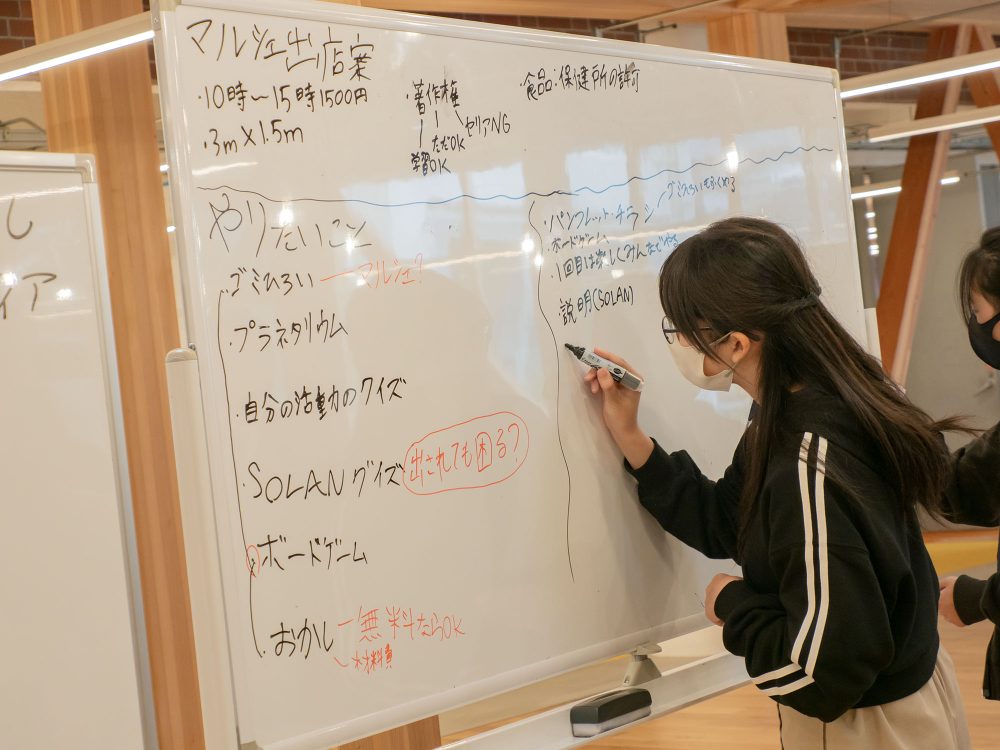 マルシェ出店案
・10時〜15時1500円
・3m×1.5m
・著作権
セリアNG
ただOK
学習OK
・食品:保健所の許可
やりたいこと
・ゴミひろい ー マルシェ?
・プラネタリウム
・自分の活動のクイズ
・SOLANクイズ 出されても困る?
・ボードゲーム
・おかし ー 無料ならOK
材料費
・パンフレット・チラシ
・ボードゲーム
・1回目は楽しくみんなでやる
・説明(SOLAN)
し
ィア